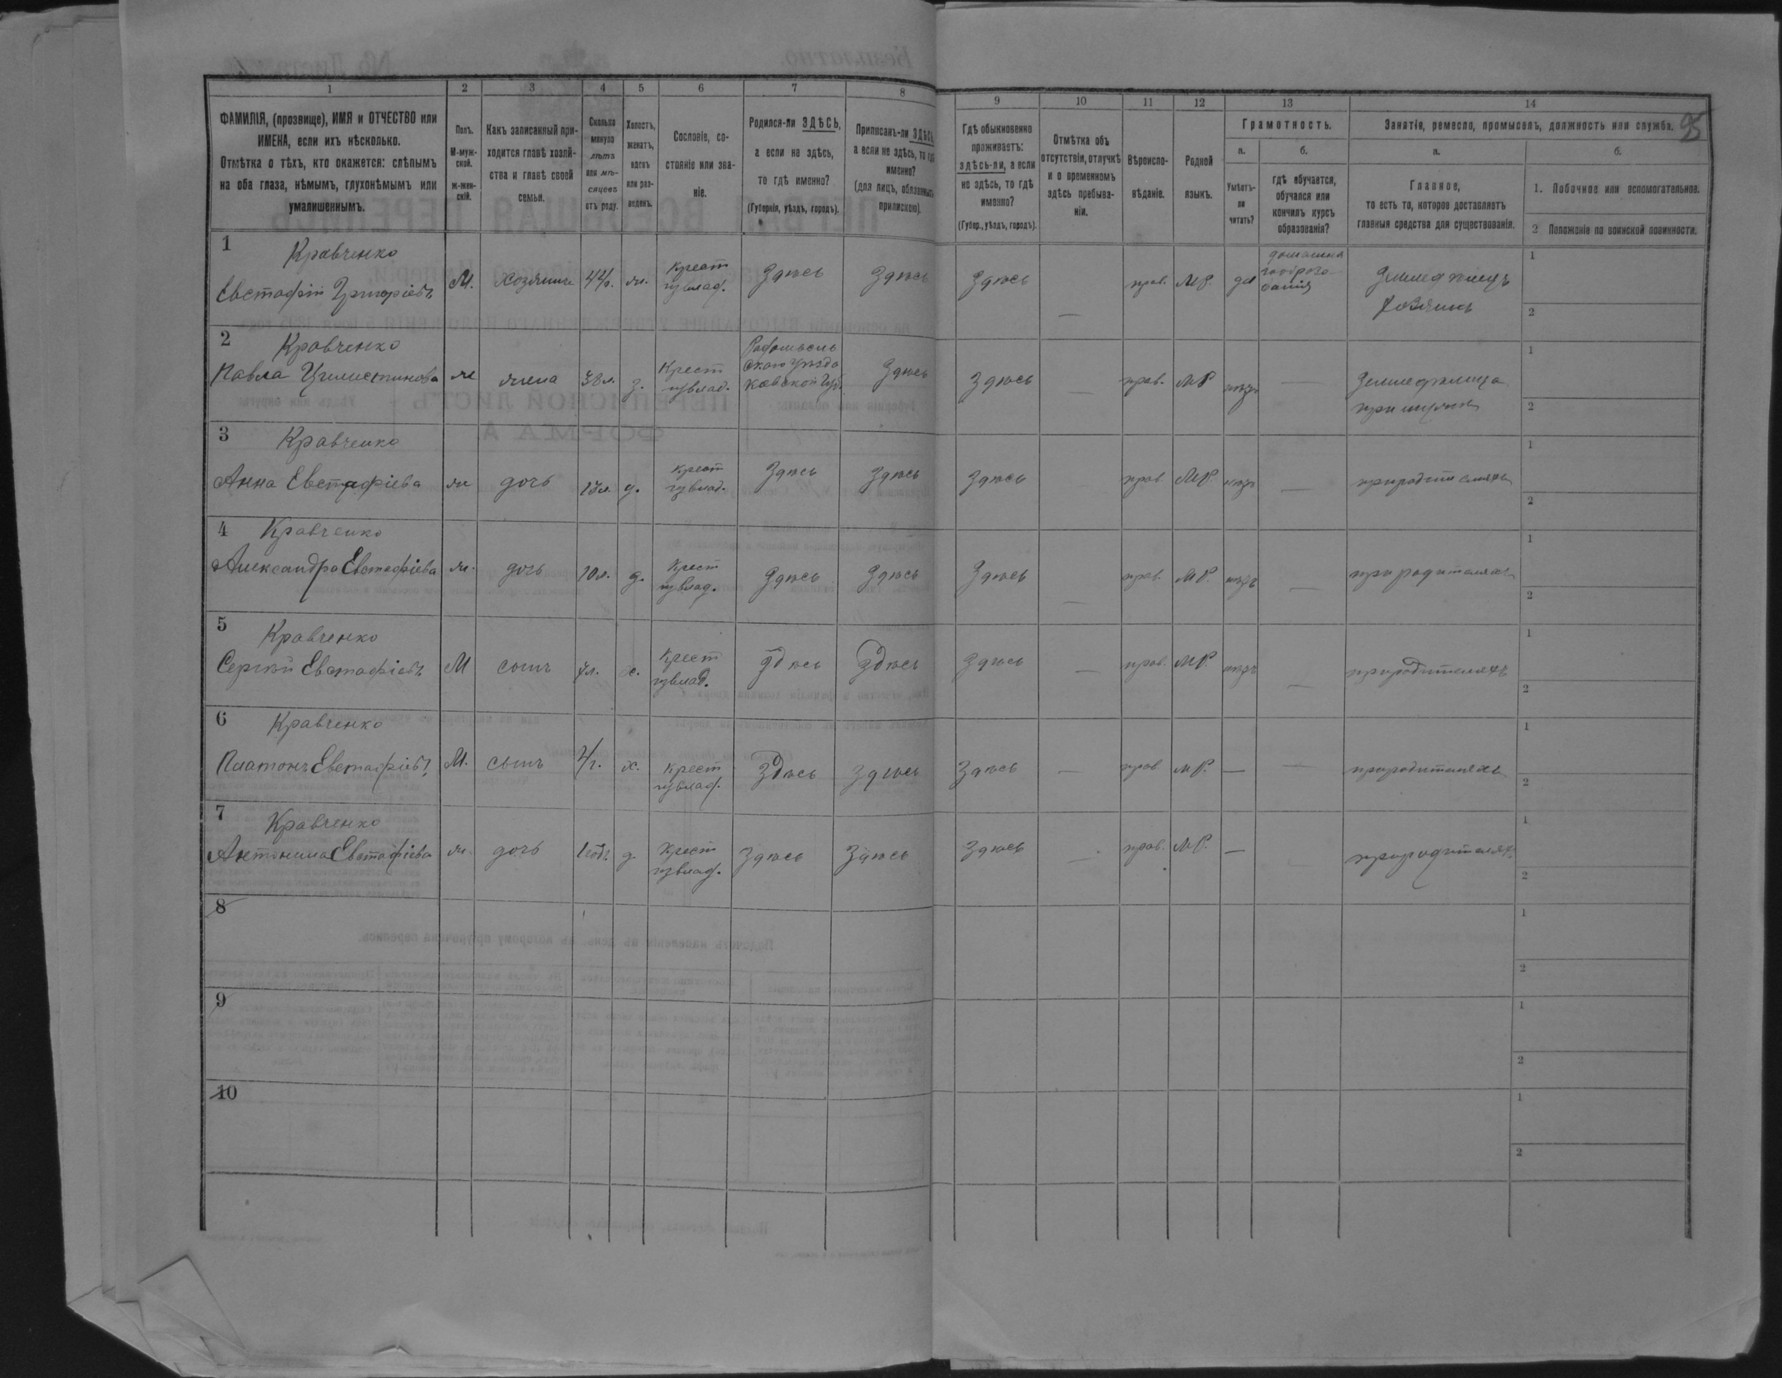 1
ФАМИЛІЯ, (прозвище), ИМЯ и ОТЧЕСТВО или
ИМЕНА, если ихъ нѣсколько.
Отмѣтка о тѣхъ, кто окажется: слѣпымъ
на оба глаза, нѣмымъ, глухонѣмымъ или
умалишеннымъ.
2
Полъ.
М-муж-
ской.
ж-жен-
скій.
3
Какъ записанный при-
ходится главѣ хозяй-
ства и главѣ своей
семьи.
4
Сколько
минуло
лѣтъ
или мѣ-
сяцевъ
отъ роду.
5
Холостъ,
женатъ,
вдовъ
или раз-
веденъ.
6
Сословіе, со-
стояніе или зва-
ніе.
7
Родился-ли ЗДѢСЬ,
а если не здѣсь,
то гдѣ именно?
(Губернія, уѣздъ, городъ).
8
Приписанъ-ли ЗДѢСЬ,
а если не здѣсь, то гдѣ
именно?
(для лицъ, обязанныхъ
припискою).
9
Гдѣ обыкновенно
проживаетъ:
здѣсь-ли, а если
не здѣсь, то гдѣ
именно?
(Губер., уѣздъ, городъ).
10
Отмѣтка объ
отсутствіи, отлучкѣ
и о временномъ
здѣсь пребыва-
ніи.
11
Вѣроиспо-
вѣданіе.
12
Родной
языкъ.
13
Грамотность.
а.
Умѣетъ-
ли
читать?
б.
гдѣ обучается,
обучался или
кончилъ курсъ
образованія?
14
Занятіе, ремесло, промыселъ, должность или служба.
95
а.
Главное,
то есть то, которое доставляетъ
главныя средства для существованія.
б.
1. Побочное или вспомогательное.
2 Положеніе по воинской повинности.
1
Кравченко
Евстафій Григоріевъ
М.
хозяинъ
44г.
ж.
Крест
извлад.
Здѣсь
Здѣсь
Здѣсь
—
прав.
МР.
да
домашняго
образо
ванія
Земледѣлецъ
хозяинъ
1
2
2
Кравченко
Павла
ж
жена
38л.
з.
Крест
извлад.
Радомысль
скаго уѣзда
Кіевской губ.
Здѣсь
Здѣсь
—
прав.
МР
нѣтъ
—
Земледѣлица
при мужѣ
1
2
3
Кравченко
Анна Евстафіева
ж
дочь
13л
д.
Крест
извлад.
Здѣсь
Здѣсь
Здѣсь
—
прав
МР.
нѣтъ
—
при родителяхъ
1
2
4
Кравченко
Александра Евстафіева
ж.
дочь
10л.
д.
Крест
извлад.
Здѣсь
Здѣсь
Здѣсь
—
прав.
МР.
нѣтъ
—
при родителяхъ
1
2
5
Кравченко
Сергѣй Евстафіевъ
М
сынъ
7л.
х.
Крест
извлад.
Здѣсь
Здѣсь
Здѣсь
—
прав.
МР.
нѣтъ
—
при родителяхъ
1
2
6
Кравченко
Платонъ Евстафіевъ
М.
сынъ
4г.
х.
Крест
извлад.
Здѣсь
Здѣсь
Здѣсь
—
прав
МР.
—
—
при родителяхъ
1
2
7
Кравченко
Антонина Евстафіева
ж.
дочь
1годъ
д.
Крест
извлад.
Здѣсь
Здѣсь
Здѣсь
—
прав.
МР.
—
—
при родителяхъ
1
2
8
1
2
9
1
2
10
1
2